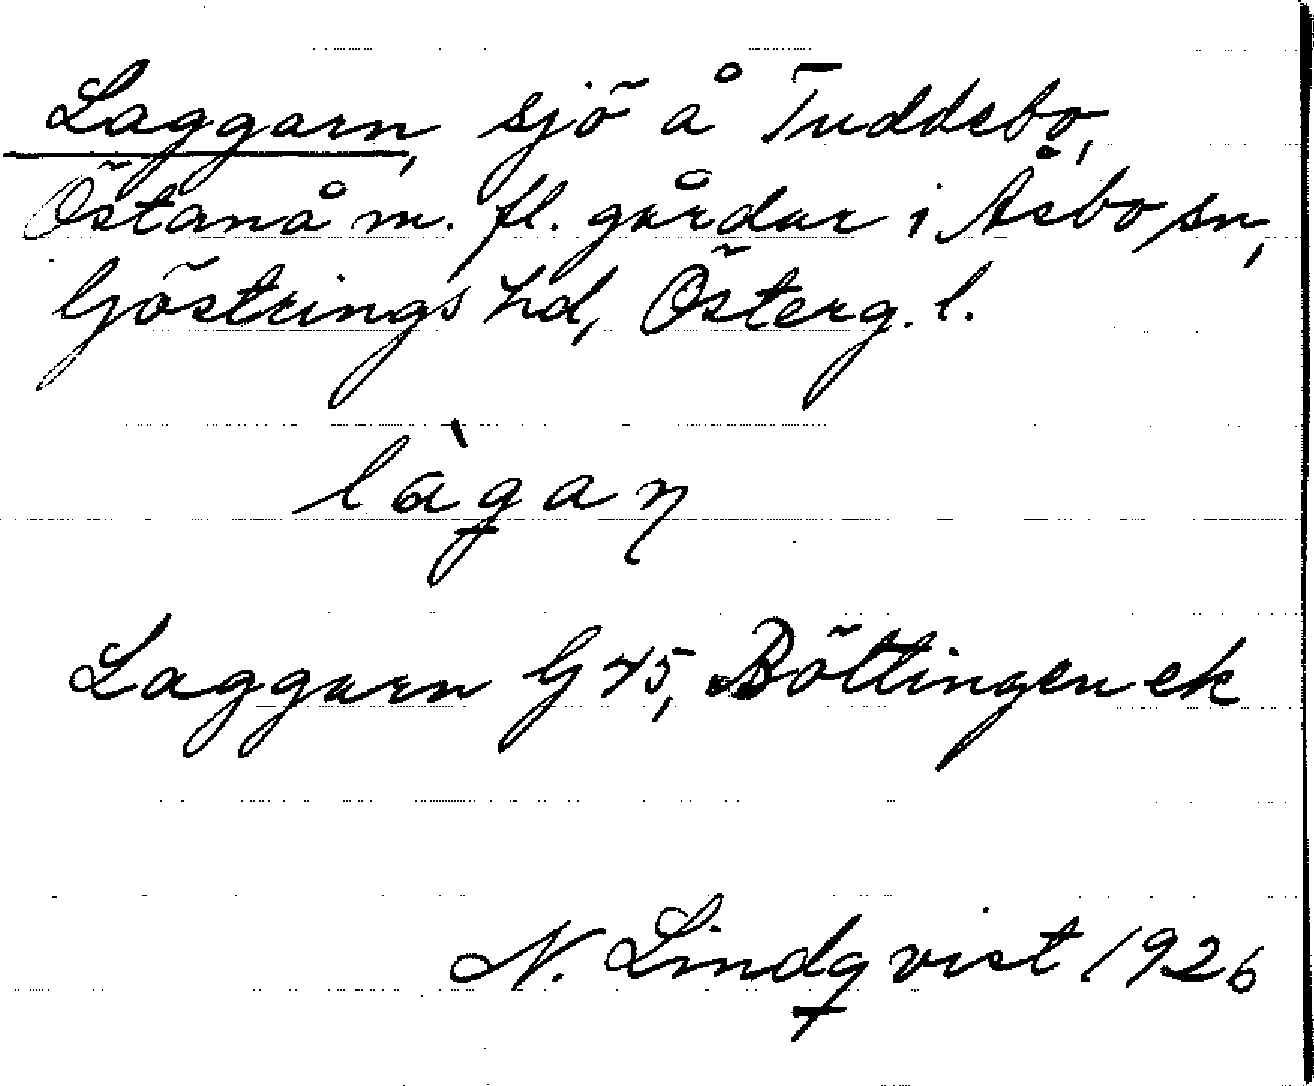 Laggarn, sjö å Tuddebo,
Östanå m. fl. gårdar i Åsbo sn,
Göstrings hd, Österg. l.
làgaɳ
Laggarn G 45, Böttingen ek
N. Lindqvist 1926